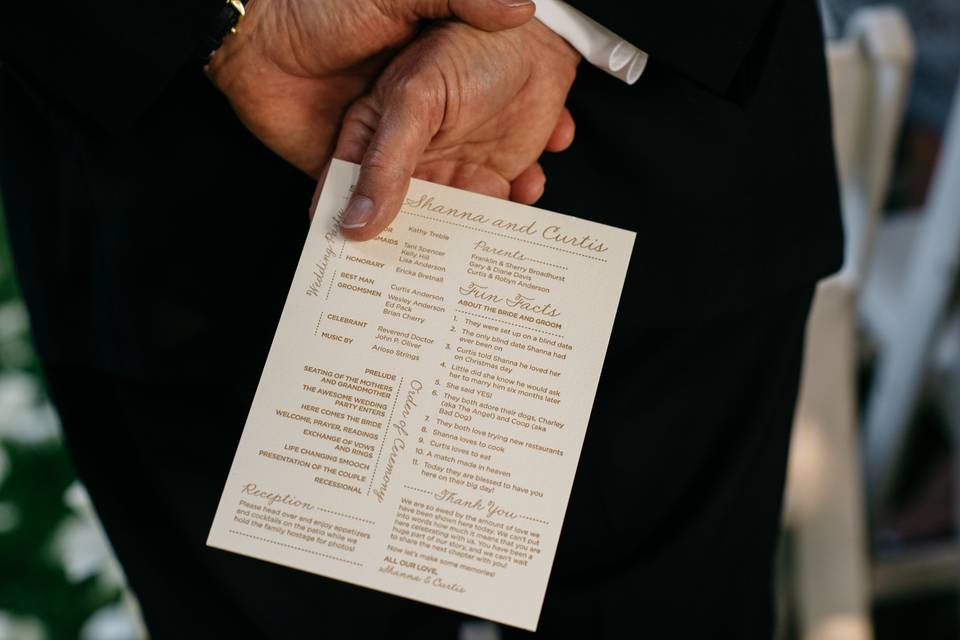 Shanna and Curtis
Wedding Party
Kathy Treble
Tani Spencer
Kelly Hill
Lisa Anderson
HONORARY
Ericka Bretnall
BEST MAN
Curtis Anderson
GROOMSMEN
Wesley Anderson
Ed Pack
Brian Cherry
CELEBRANT
Reverend Doctor
John P. Oliver
MUSIC BY
Arioso Strings
Order of Ceremony
PRELUDE
SEATING OF THE MOTHERS
AND GRANDMOTHER
THE AWESOME WEDDING
PARTY ENTERS
HERE COMES THE BRIDE
WELCOME, PRAYER, READINGS
EXCHANGE OF VOWS
AND RINGS
LIFE CHANGING SMOOCH
PRESENTATION OF THE COUPLE
RECESSIONAL
Reception
Please head over and enjoy appetizers
and cocktails on the patio while we
hold the family hostage for photos!
Parents
Franklin & Sherry Broadhurst
Gary & Diane Davis
Curtis & Robyn Anderson
Fun Facts
ABOUT THE BRIDE AND GROOM
1. They were set up on a blind data
2. The only blind data Shanna had
ever been on
3. Curtis told Shanna he loved her
on Christmas day
4. Little did she know he would ask
her to marry him six months later
5. She said YES!
6. They both adore their dogs, Charley
(aka The Angel) and Coop (aka
Bad Dog)
7. They both love trying new restaurants
8. Shanna loves to cook
9. Curtis loves to eat
10. A match made in heaven
11. Today they are blessed to have you
here on their big day!
Thank You
We are so awed by the amount of love we
have been shown here today. We can't put
into words how much it means that you are
here celebrating with us. You have been a
huge part of our story, and we can't wait
to share the next chapter with you!
Now let's make some memories!
ALL OUR LOVE,
Shanna & Curtis